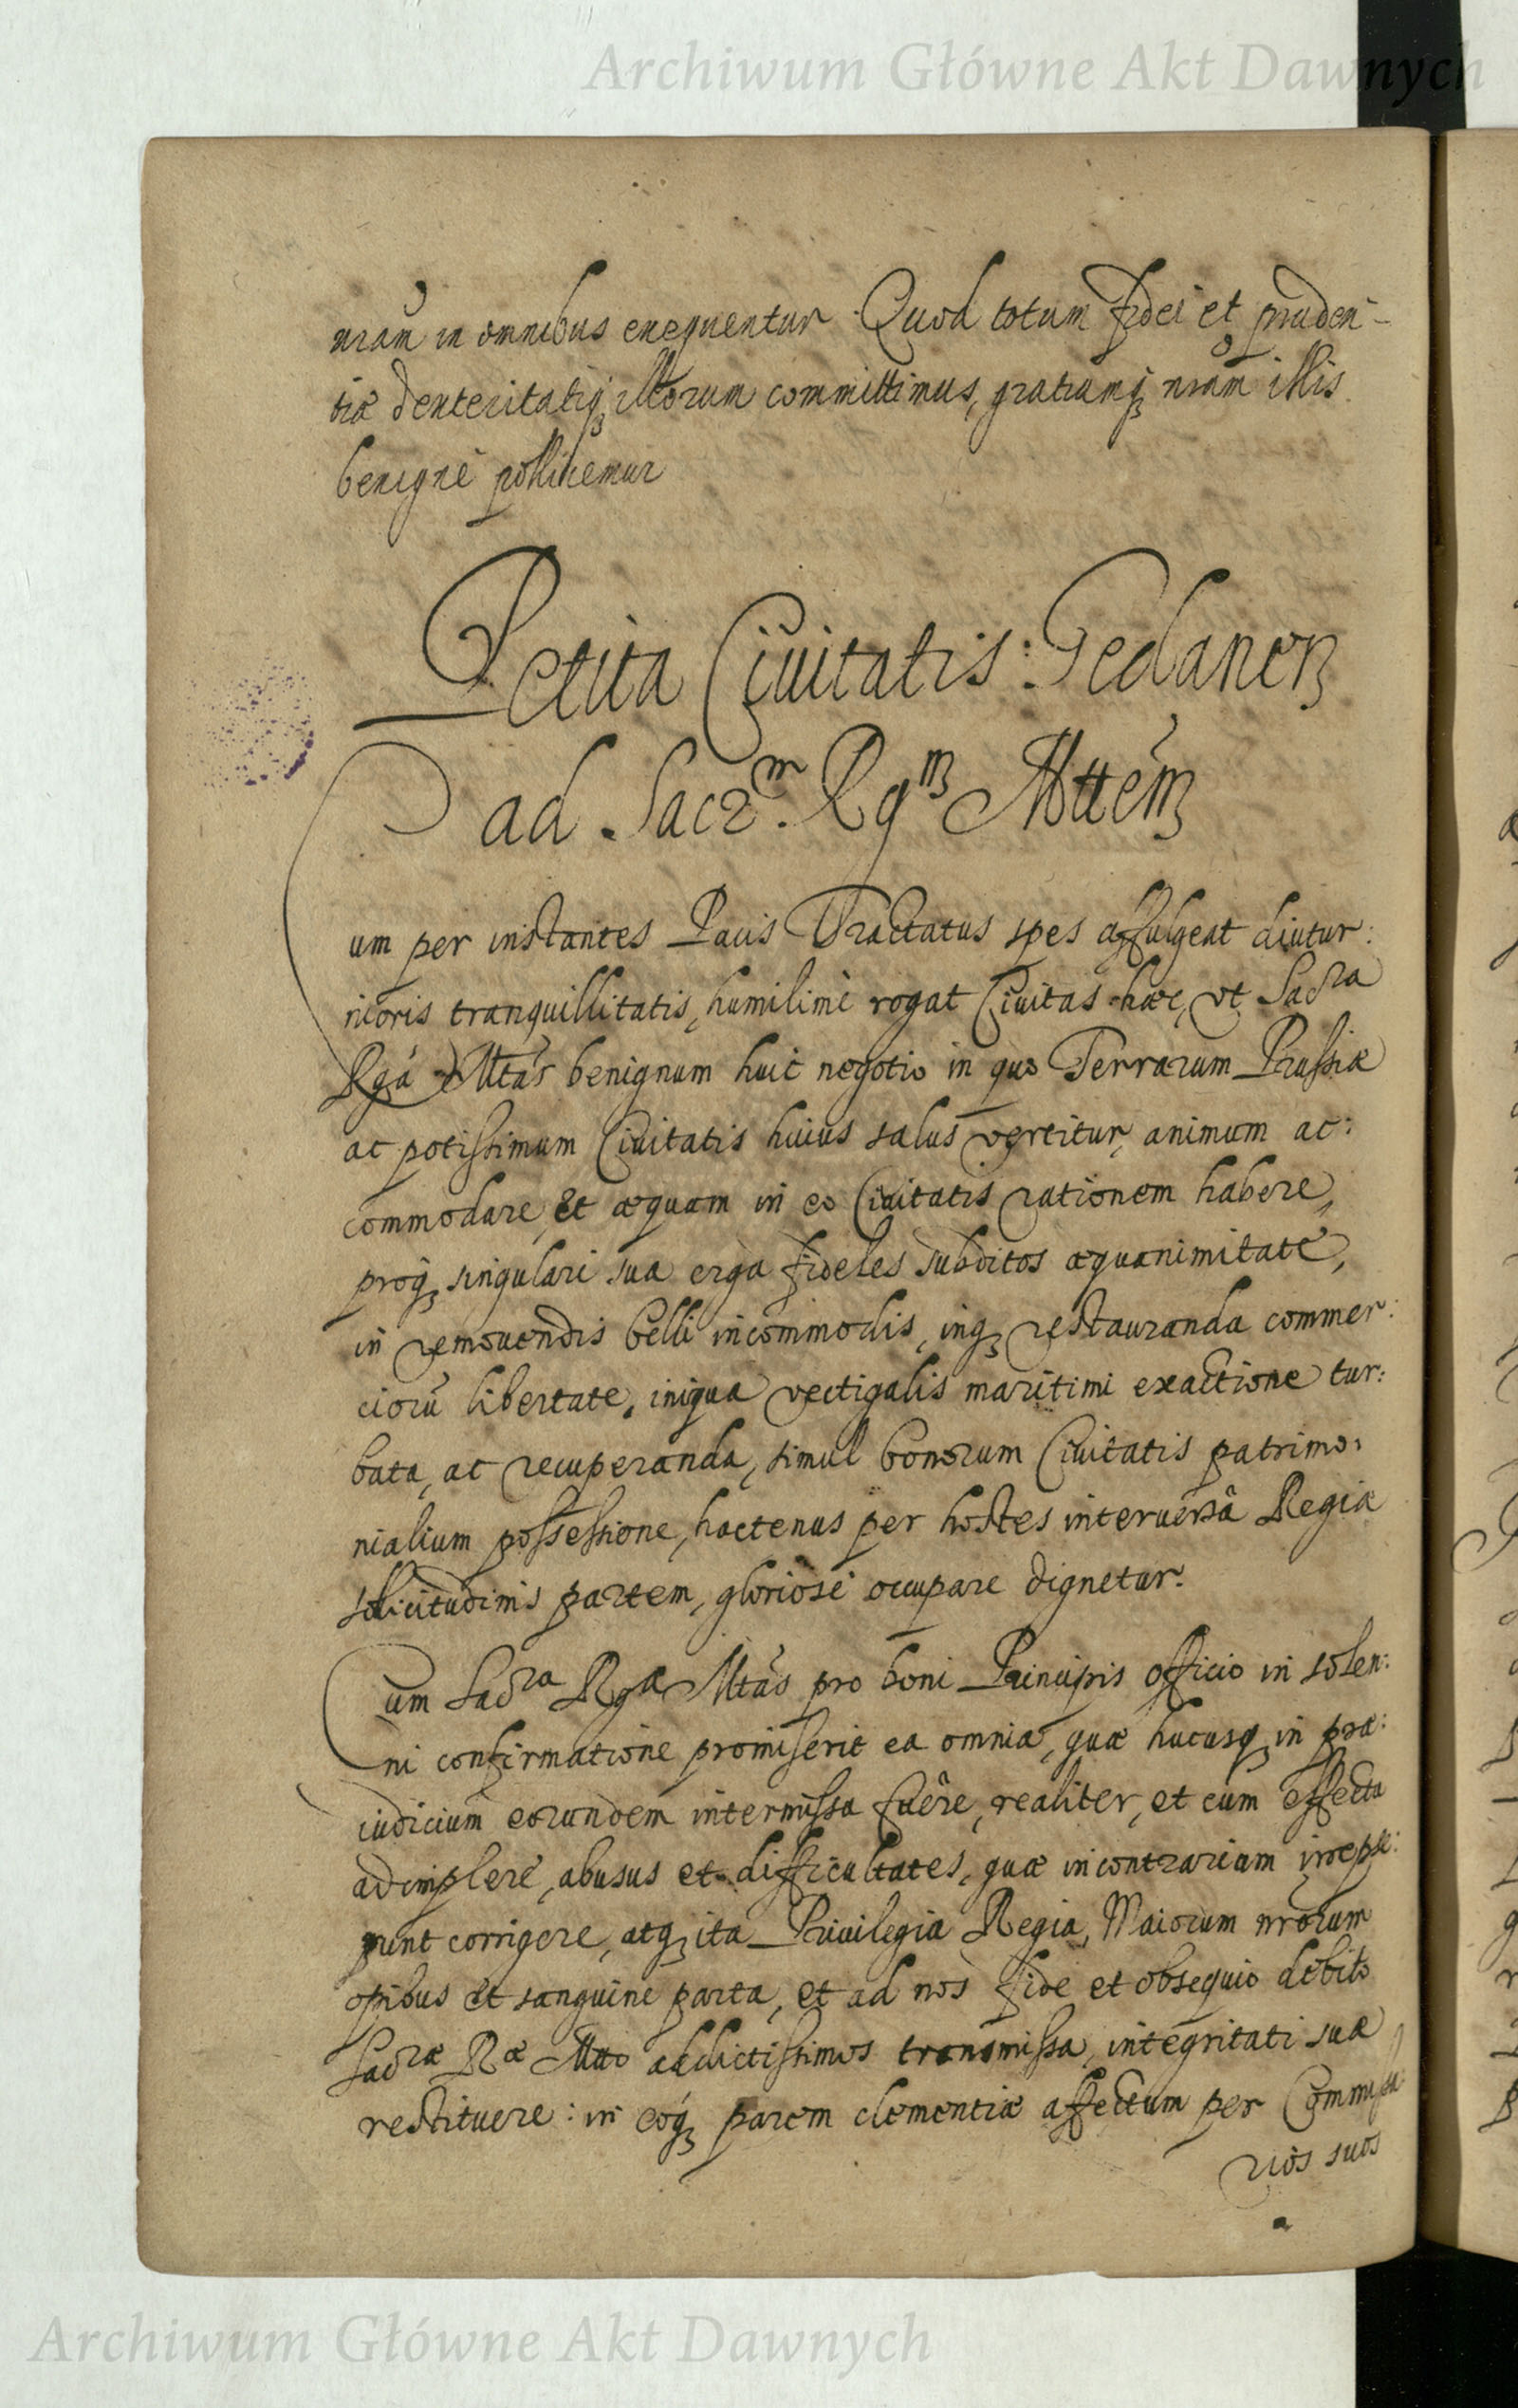 Archiwum Główne Akt Dawnych
nram in omnibus exequentur. Quod totum fidei et pruden-
tiæ dexteritatiq; illorum committimus, gratiamq; nram illis
benignè pollicemur
Petita Civitatis: Gedanen
ad Sacrm. Rgm Mttem
Cum per instantes Pacis Tractatus spes affulgeat diutur:
nioris tranquillitatis, humilimè rogat Civitas hæc, vt Sacra
Rga Mtas benignum huic negotio in quo Terrarum Prussiæ
ac potissimum Civitatis huius salus vertitur, animum ac:
commodare, et æquam in eo Civitatis rationem habere,
proq; singulari sua erga fideles subditos æquanimitate,
in removendis belli incommodis, inq; restauranda commer:
ciorū libertate, iniqua vectigalis maritimi exactione tur:
bata, ac recuperanda, simul bonorum Civitatis patrimo:
nialium possessione, hactenus per hostes interversâ Regiæ
solicitudinis partem, gloriosè occupare dignetur.
Cum Sacra Rga Mtas pro boni Principis officio in solen:
ni confirmatione promiserit ea omnia, quæ hucusq; in præ:
iudicium eorundem intermissa fuêre, realiter, et cum effectu
adimplere, abusus et difficultates, quæ in contrarium irrepse:
runt corrigere, atq; ita Privilegia Regia, Maiorum nrorum
opibus et sanguine parta, et ad nos fide et obsequio debito
Sacræ Ræ Mtti addictissimos transmissa, integritati suæ
restituere: in eoq; parem clementiæ affectum per Commissa:
rios suos
Archiwum Główne Akt Dawnych